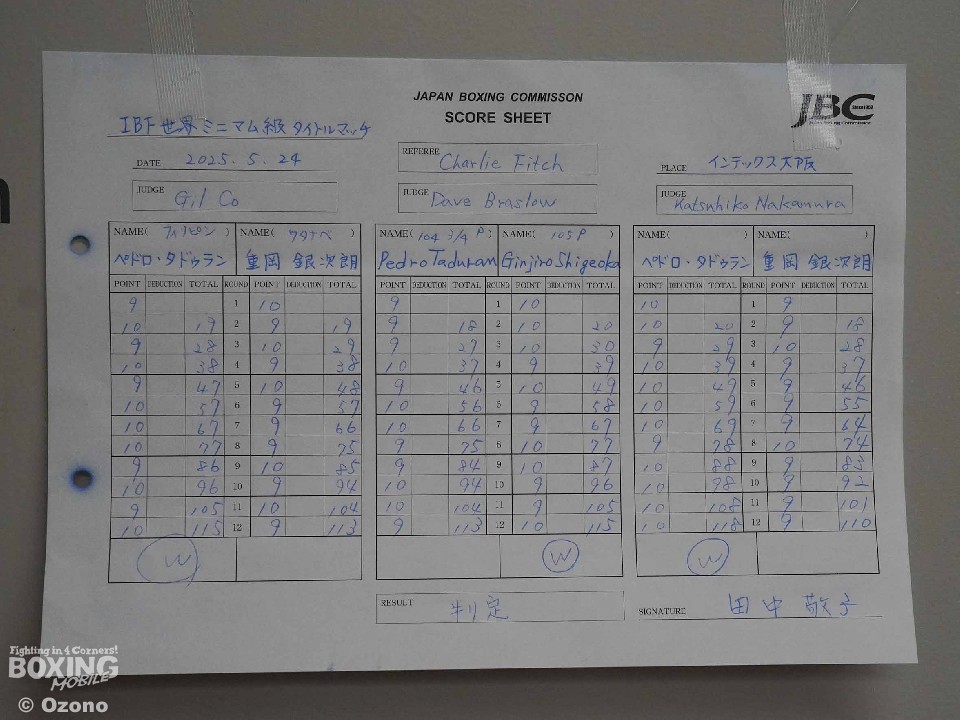 JAPAN BOXING COMMISSON
SCORE SHEET
JBC
IBF世界ミニマム級タイトルマッチ
DATE 2025.5.24
REFEREE Charlie Fitch
PLACE インテックス大阪
JUDGE Gil Co
JUDGE Dave Braslow
JUDGE Katsuhiko Nakamura
NAME( フィリピン ) NAME( ワタナベ ) NAME( 104 3/4 P ) NAME( 105 P ) NAME( ) NAME( )
ペドロ・タドゥラン 重岡 銀次朗 Pedro Taduran Ginjiro Shigeoka ペドロ・タドゥラン 重岡 銀次朗
POINT DEDUCTION TOTAL ROUND POINT DEDUCTION TOTAL POINT DEDUCTION TOTAL ROUND POINT DEDUCTION TOTAL POINT DEDUCTION TOTAL ROUND POINT DEDUCTION TOTAL
9 1 10 9 1 10 10 1 9
10 19 2 9 19 9 18 2 10 20 10 20 2 9 18
9 28 3 10 29 9 27 3 10 30 9 29 3 10 28
10 38 4 9 38 10 37 4 9 39 10 39 4 9 37
9 47 5 10 48 9 46 5 10 49 10 49 5 9 46
10 57 6 9 57 10 56 6 9 58 10 59 6 9 55
10 67 7 9 66 10 66 7 9 67 10 69 7 9 64
10 77 8 9 75 9 75 8 10 77 9 78 8 10 74
9 86 9 10 85 9 84 9 10 87 10 88 9 9 83
10 96 10 9 94 10 94 10 9 96 10 98 10 9 92
9 105 11 10 104 10 104 11 9 105 10 108 11 9 101
10 115 12 9 113 9 113 12 10 115 10 118 12 9 110
W W W
RESULT 判定
SIGNATURE 田中 敬子
Fighting in 4 Corners!
BOXING
MOBILE
© Ozono